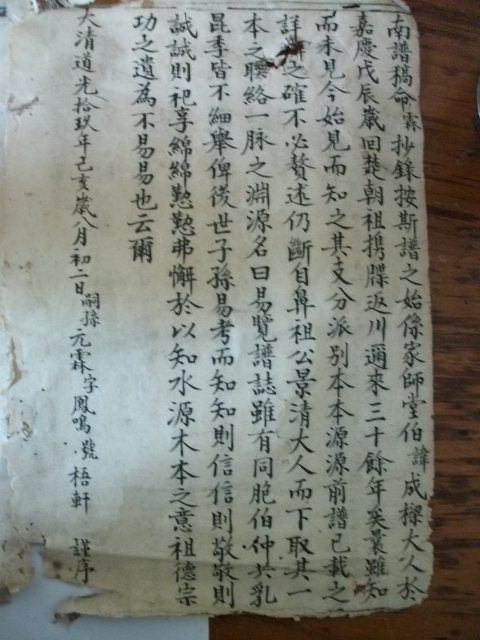 南譜稿命霖抄錄按斯譜之始係家師堂伯諱成樑大人於
嘉慶戊辰歲回楚朝祖携牒返川邇來三十餘年矣曩雖知
而未見今始見而知之其支分派別本本源源前譜已載之
詳之確不必贅述仍斷自鼻祖公景清大人而下取其一
本之聯絡一脉之淵源名曰易覽譜誌雖有同胞伯仲共乳
昆季皆不細舉俾後世子孫易考而知知則信信則敬敬則
誠誠則祀享綿綿懃懃弗懈於以知水源木本之意祖德宗
功之遺為不易易也云爾
大清道光拾玖年己亥歲八月初二日嗣孫元霖字鳳鳴號梧軒 謹序